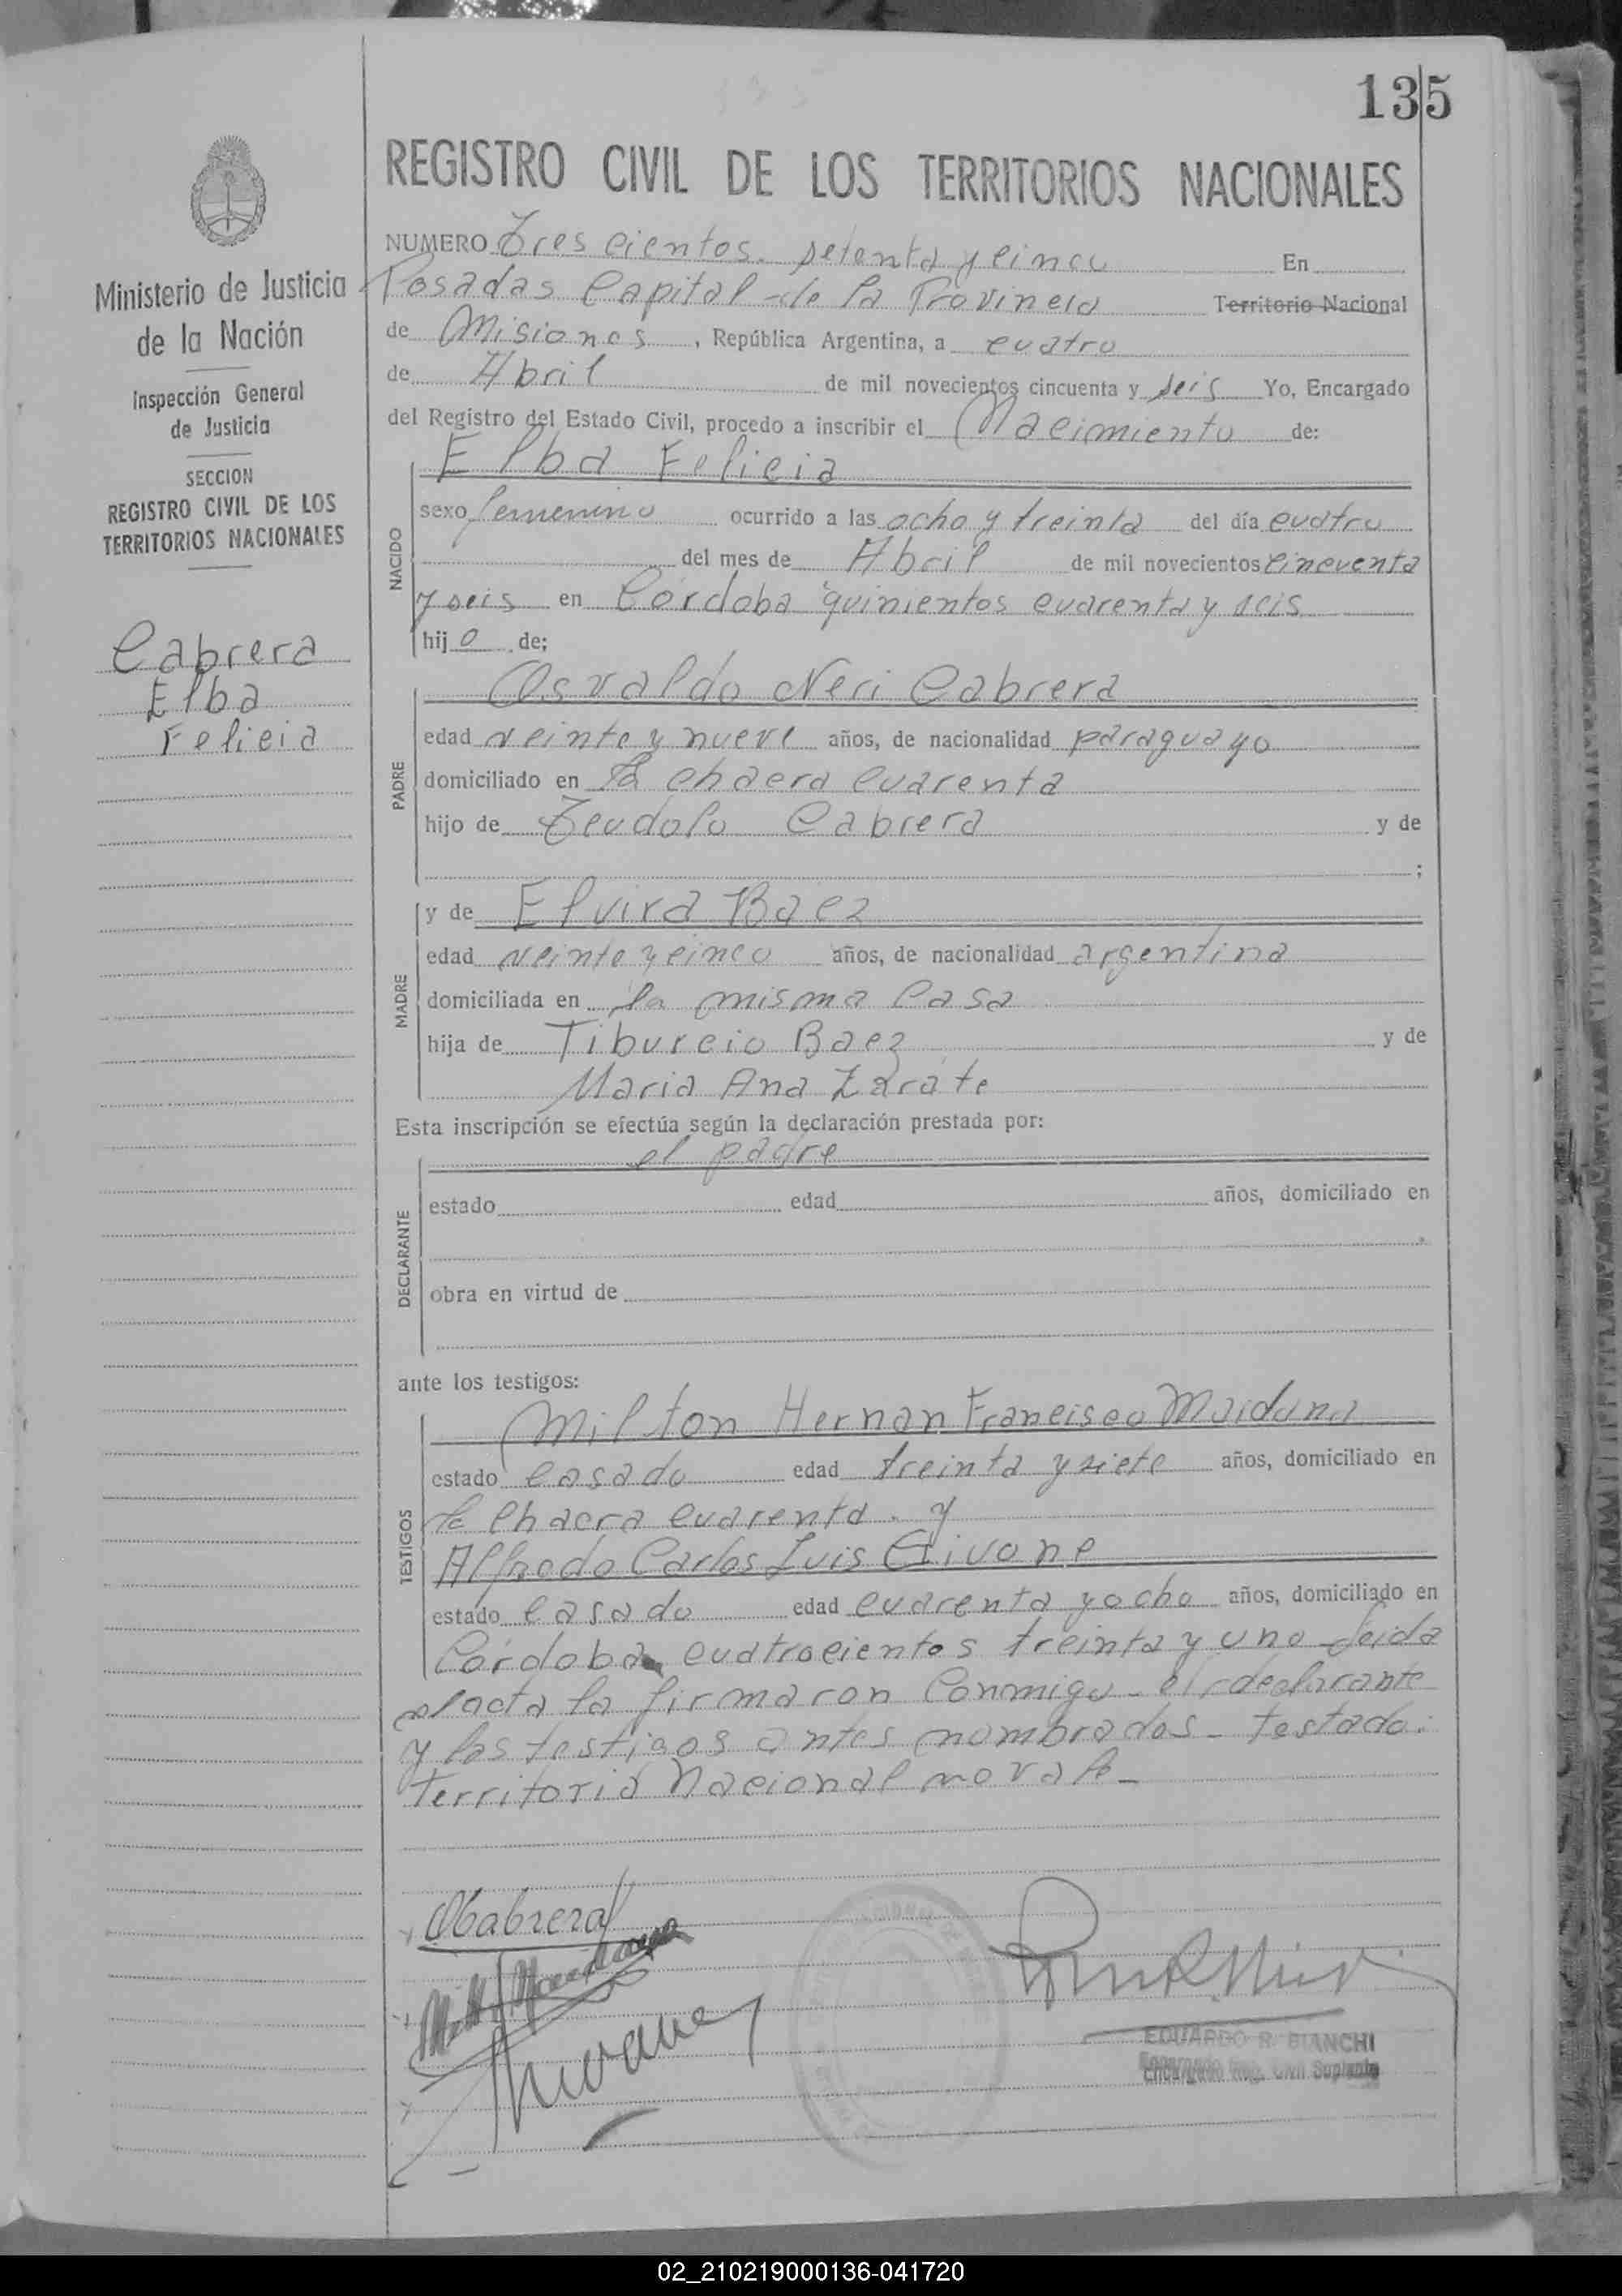 135
REGISTRO CIVIL DE LOS TERRITORIOS NACIONALES
Ministerio de Justicia
de la Nación
Inspección General
de Justicia
SECCION
REGISTRO CIVIL DE LOS
TERRITORIOS NACIONALES
Cabrera
Elba
Felicia
NUMERO Tres cientos setenta y cinco En
Posadas Capital de la Provincia Territorio Nacional
de Misiones, República Argentina, a cuatro
de Abril de mil novecientos cincuenta y seis Yo, Encargado
del Registro del Estado Civil, procedo a inscribir el Nacimiento de:
NACIDO
Elba Felicia
sexo femenino ocurrido a las ocho y treinta del día cuatro
del mes de Abril de mil novecientos cincuenta
y seis en Córdoba quinientos cuarenta y seis
hijo de;
PADRE
Osvaldo Neri Cabrera
edad veinte y nueve años, de nacionalidad paraguayo
domiciliado en la chacra cuarenta
hijo de Teudolo Cabrera y de
;
MADRE
y de Elvira Baez
edad veinte y cinco años, de nacionalidad argentina
domiciliada en la misma casa
hija de Tiburcio Baez y de
Maria Ana Zarate
Esta inscripción se efectúa según la declaración prestada por:
el padre
DECLARANTE
estado edad años, domiciliado en
obra en virtud de
ante los testigos:
TESTIGOS
Milton Hernan Francisco Maidana
estado casado edad treinta y siete años, domiciliado en
la chacra cuarenta. y
Alfredo Carlos Luis Givone
estado casado edad cuarenta y ocho años, domiciliado en
Córdoba cuatrocientos treinta y uno leida
el acta la firmaron conmigo - el declarante
y los testigos antes nombrados - Testado:
Territorio Nacional no vale -
OCabrera
EDUARDO R. BIANCHI
Encargado Reg. Civil Suplente
02_210219000136-041720